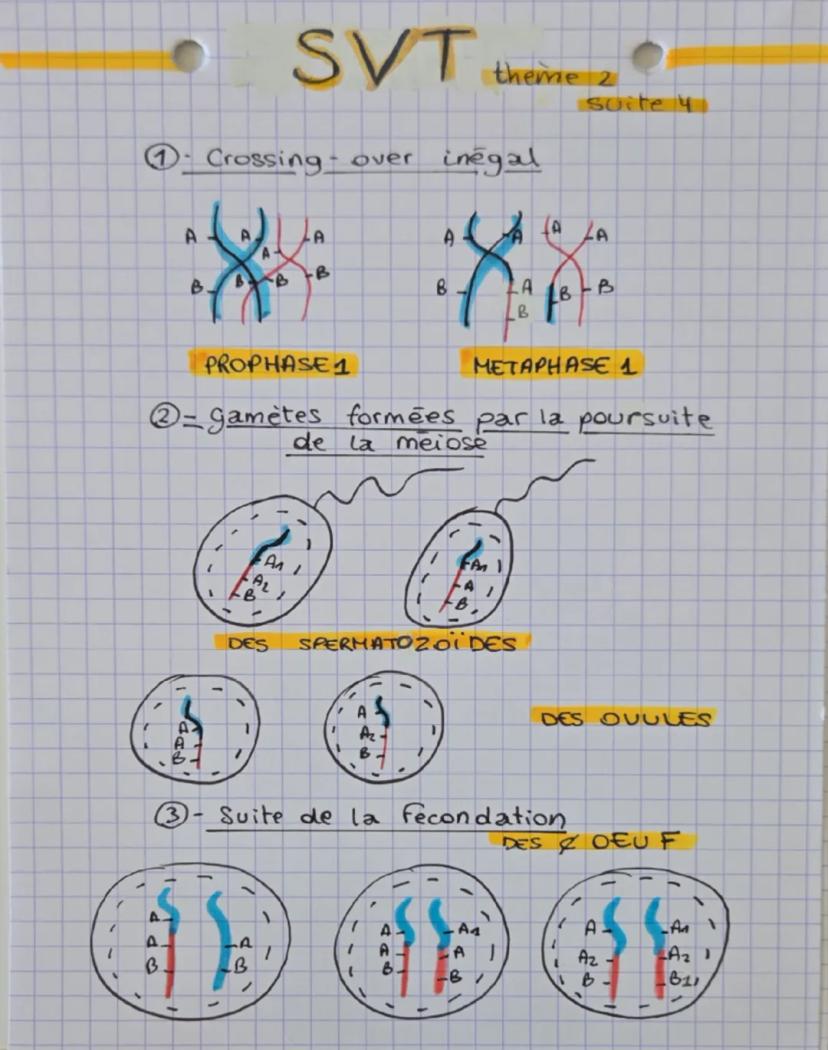 SVT
thème 2
suite 4
①- Crossing-over inégal
A A A A
B B B B
A A A A
B A B B
B
PROPHASE 1
METAPHASE 1
②- gamètes formées par la poursuite
de la méiose
A1
A2
B
A1
A
B
DES SPERMATOZOÏDES
A
A
B
A
A2
B
DES OVULES
③- Suite de la fécondation
DES OEUF
A
A
B
A
B
A
A
B
A1
A
B
A
A2
B
A1
A2
B1